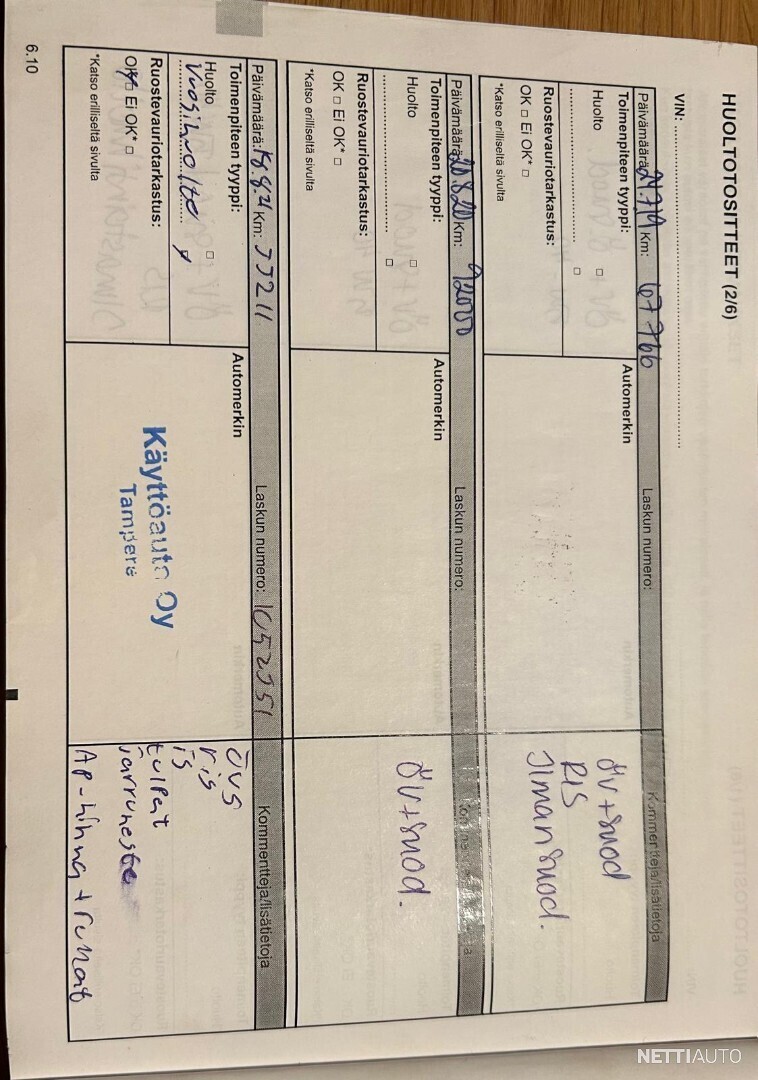 HUOLTOTOSITTEET (2/6)
VIN: ........................................
Päivämäärä: Km: 67766 Laskun numero: Kommentteja/lisätietoja
Toimenpiteen tyyppi:
Huolto □
........................................ □
Ruostevauriotarkastus:
OK □ Ei OK* □
*Katso erilliseltä sivulta
Automerkin
öv+suod
RIS
Ilmansuod.
Päivämäärä: 20.8.20 Km: 92000 Laskun numero:
Toimenpiteen tyyppi:
Huolto □
........................................ □
Ruostevauriotarkastus:
OK □ Ei OK* □
*Katso erilliseltä sivulta
Automerkin
öv+suod.
Päivämäärä: Km: Laskun numero: Kommentteja/lisätietoja
Toimenpiteen tyyppi:
Huolto □
Vuosihuolto
Ruostevauriotarkastus:
OK Ei OK* □
*Katso erilliseltä sivulta
Automerkin
Käyttöauto Oy
Tampere
övs
ris
is
tulpat
Jarruneste
Ap-hihna + rullat
6.10
NETTIAUTO